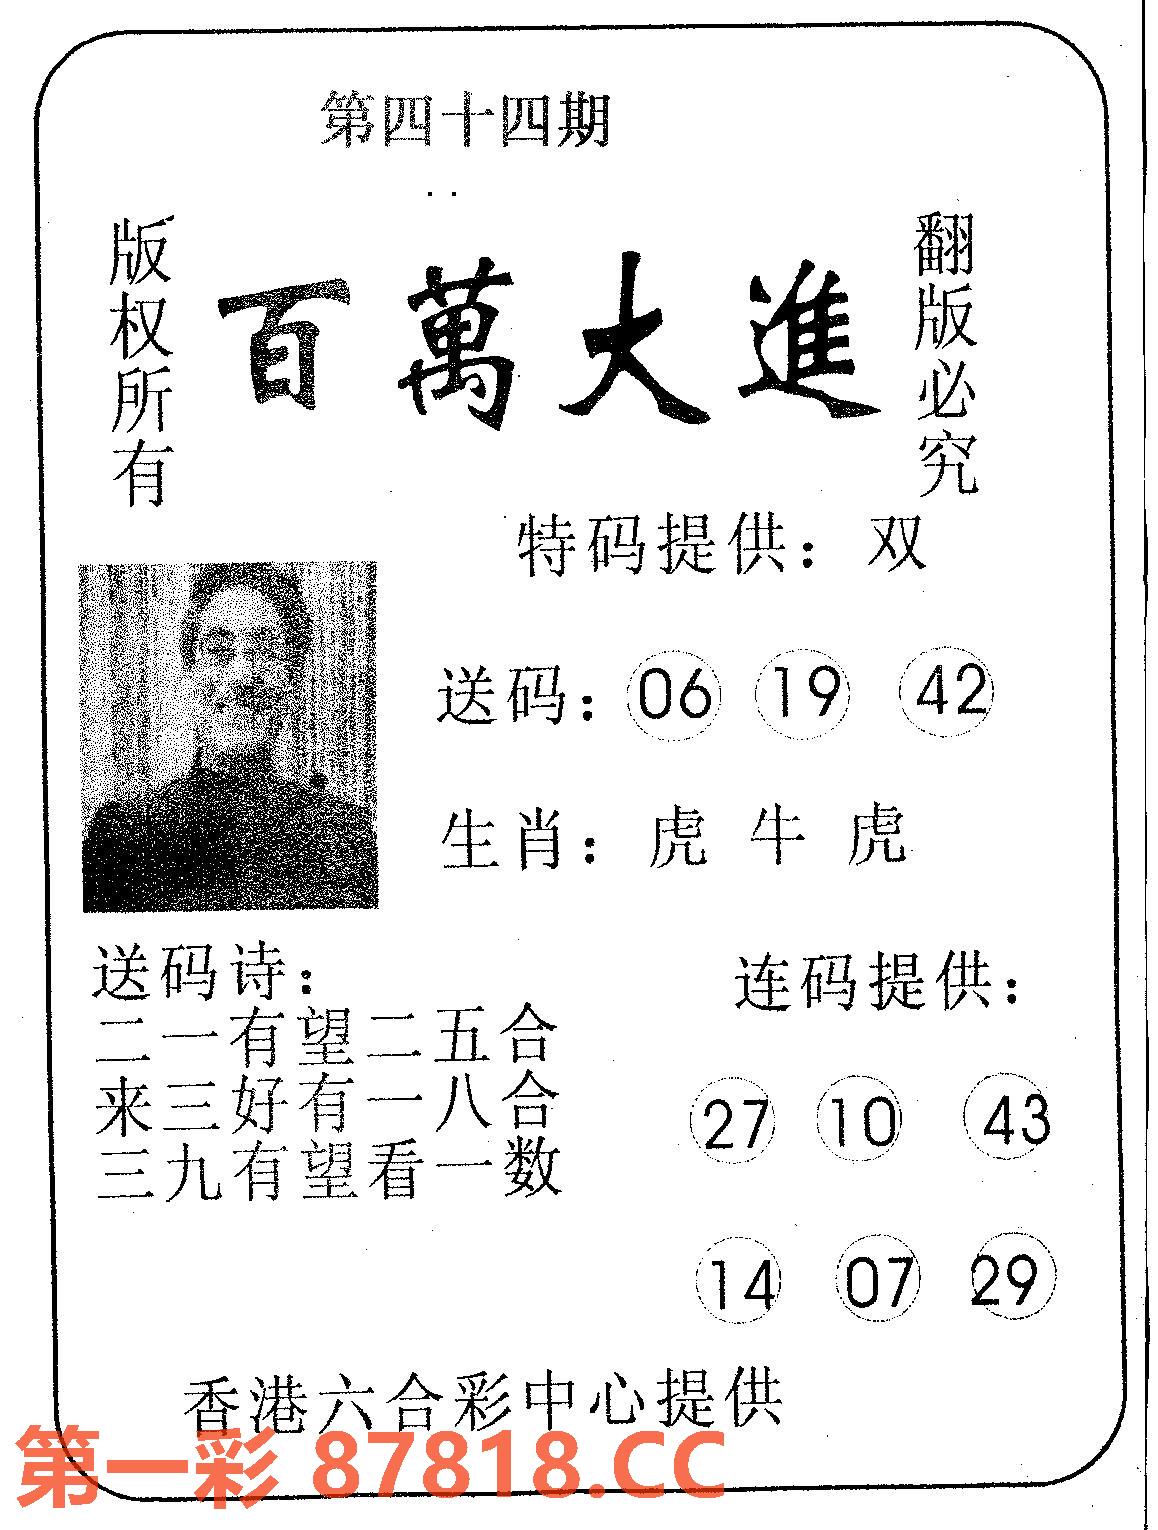 第四十四期
版权所有
百萬大進
翻版必究
特码提供：双
送码：06 19 42
生肖：虎 牛 虎
送码诗：
二一有望二五合
来三好有一八合
三九有望看一数
连码提供：
27 10 43
14 07 29
香港六合彩中心提供
第一彩 87818.CC